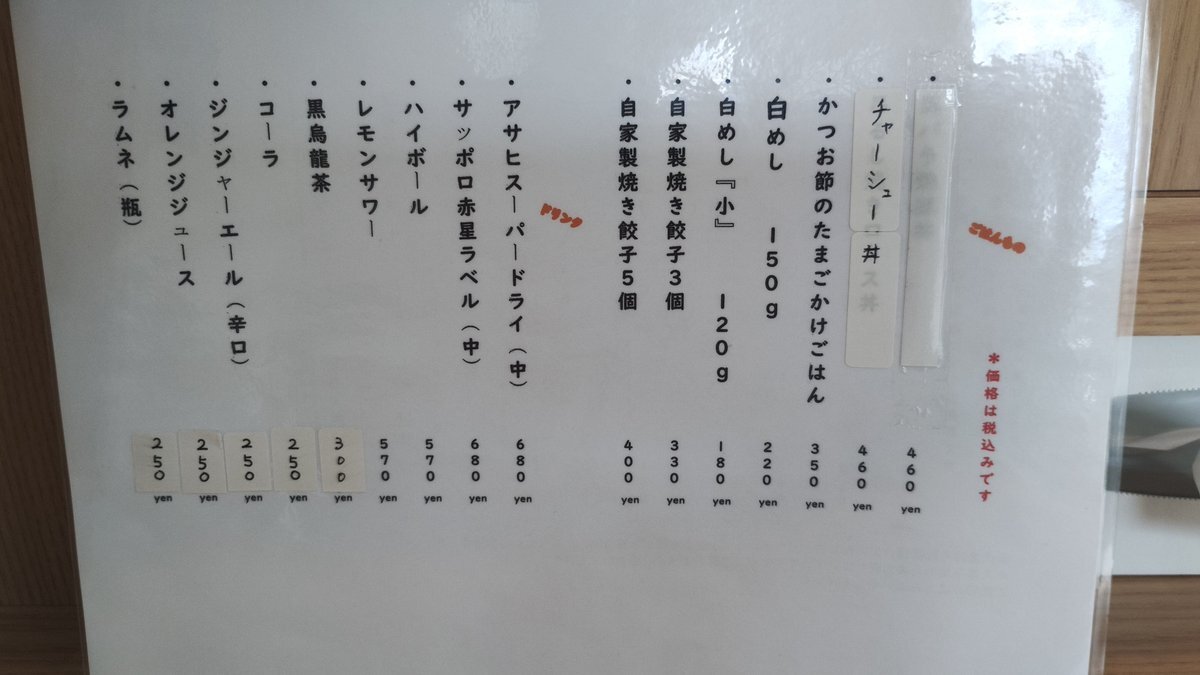 ＊価格は税込みです
・
460 yen
・チャーシュー丼
460 yen
・かつお節のたまごかけごはん
350 yen
・白めし 150g
220 yen
・白めし『小』 120g
180 yen
・自家製焼き餃子3個
330 yen
・自家製焼き餃子5個
400 yen
ドリンク
・アサヒスーパードライ（中）
680 yen
・サッポロ赤星ラベル（中）
680 yen
・ハイボール
570 yen
・レモンサワー
570 yen
・黒烏龍茶
300 yen
・コーラ
250 yen
・ジンジャーエール（辛口）
250 yen
・オレンジジュース
250 yen
・ラムネ（瓶）
250 yen